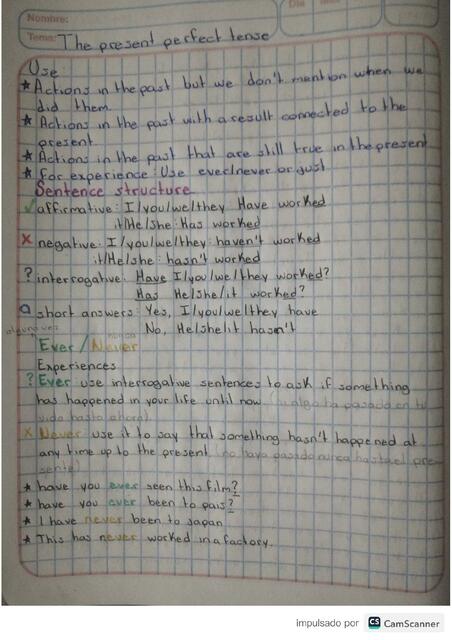 Nombre:
Día Mes
Tema: The present perfect tense
Use
★ Actions in the past but we don't mention when we
did them.
★ Actions in the past with a result connected to the
present
★ Actions in the past that are still true in the present
★ for experience: Use ever/never or just
Sentence structure
✓ affirmative: I/you/we/they Have worked
it/He/she: Has worked
x negative: I/you/we/they: haven't worked
it/He/she: hasn't worked
? interrogative: Have I/you/we/they worked?
Has He/she/it worked?
a short answers: Yes, I/you/we/they have
No, He/she/it hasn't
alguna vez nunca
Ever / Never
Experiences
? Ever use interrogative sentences to ask if something
has happened in your life until now (si algo ha pasado en tu
vida hasta ahora)
x Never use it to say that something hasn't happened at
any time up to the present (no haya pasado nunca hasta el pre-
sente)
★ have you ever seen this film?
★ have you ever been to pais?
★ I have never been to Japan
★ This has never worked in a factory.
impulsado por CS CamScanner